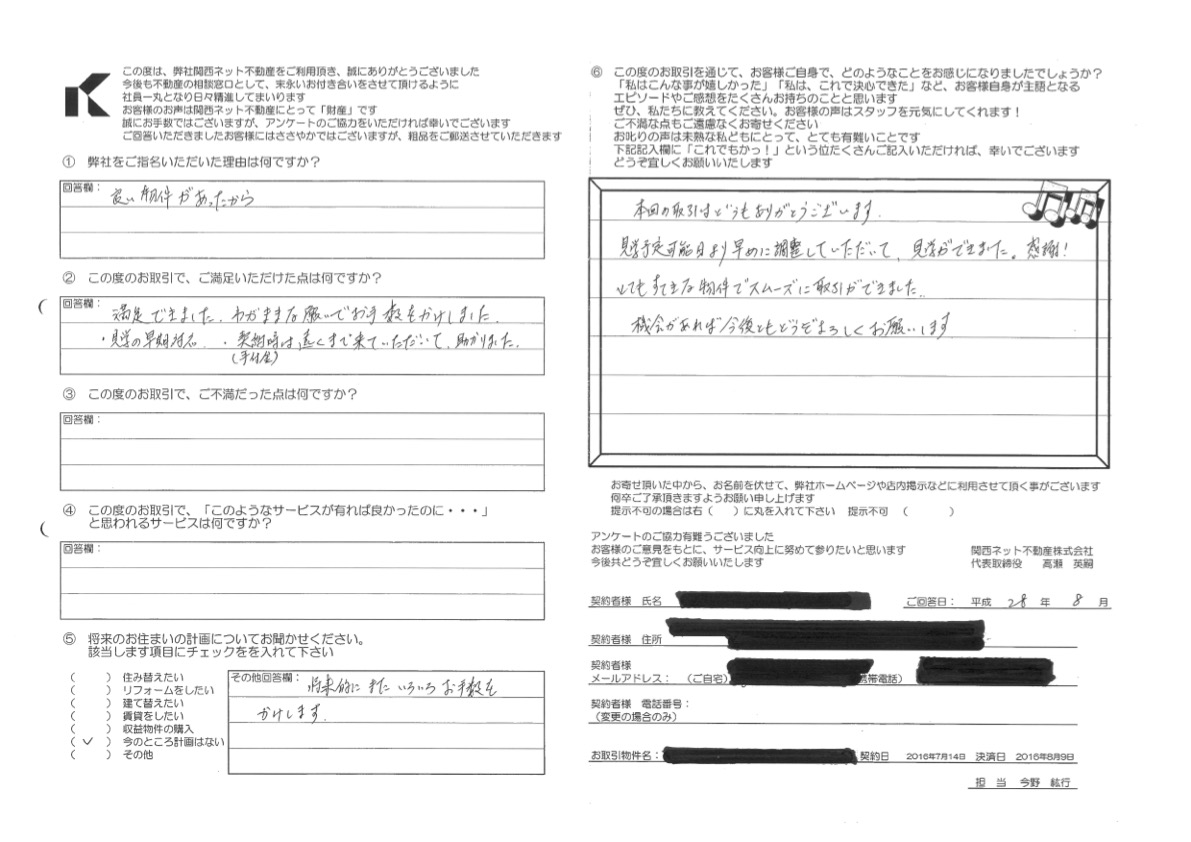 この度は、弊社関西ネット不動産をご利用頂き、誠にありがとうございました
今後も不動産の相談窓口として、末永いお付き合いをさせて頂けるように
社員一丸となり日々精進してまいります
お客様のお声は関西ネット不動産にとって「財産」です
誠にお手数ではございますが、アンケートのご協力をいただければ幸いでございます
ご回答いただきましたお客様にはささやかではございますが、粗品をご郵送させていただきます
① 弊社をご指名いただいた理由は何ですか？
回答欄：
良い物件があったから
② この度のお取引で、ご満足いただけた点は何ですか？
回答欄：
満足できました。わがままな願いでお手数をかけしました。
・見学の早期対応 ・契約時は遠くまで来ていただいて、助かりました。
(手付金)
③ この度のお取引で、ご不満だった点は何ですか？
回答欄：
④ この度のお取引で、「このようなサービスが有れば良かったのに・・・」
と思われるサービスは何ですか？
回答欄：
⑤ 将来のお住まいの計画についてお聞かせください。
該当します項目にチェックをを入れて下さい
( ) 住み替えたい
( ) リフォームをしたい
( ) 建て替えたい
( ) 賃貸をしたい
( ) 収益物件の購入
( ✓ ) 今のところ計画はない
( ) その他
その他回答欄：
将来的にまたいろいろお手数を
かけします。
⑥ この度のお取引を通じて、お客様ご自身で、どのようなことをお感じになりましたでしょうか？
「私はこんな事が嬉しかった」「私は、これで決心できた」など、お客様自身が主語となる
エピソードやご感想をたくさんお持ちのことと思います
ぜひ、私たちに教えてください。お客様の声はスタッフを元気にしてくれます！
ご不満な点もご遠慮なくお寄せください
お叱りの声は未熟な私どもにとって、とても有難いことです
下記記入欄に「これでもかっ！」という位たくさんご記入いただければ、幸いでございます
どうぞ宜しくお願いいたします
本回の取引はどうもありがとうございます。
見学予定可能日より早めに調整していただいて、見学ができました。感謝！
とてもすてきな物件でスムーズに取引ができました。
機会があれば今後ともどうぞよろしくお願いします
お寄せ頂いた中から、お名前を伏せて、弊社ホームページや店内掲示などに利用させて頂く事がございます
何卒ご了承頂きますようお願い申し上げます
提示不可の場合は右（ ）に丸を入れて下さい 提示不可 （ ）
アンケートのご協力有難うございました
お客様のご意見をもとに、サービス向上に努めて参りたいと思います
今後共どうぞ宜しくお願いいたします
関西ネット不動産株式会社
代表取締役 高瀬 英嗣
契約者様 氏名
ご回答日： 平成 28 年 8 月
契約者様 住所
契約者様
メールアドレス： （ご自宅） 携帯電話）
契約者様 電話番号：
（変更の場合のみ）
お取引物件名： 契約日 2016年7月14日 決済日 2016年8月9日
担 当 今野 紘行